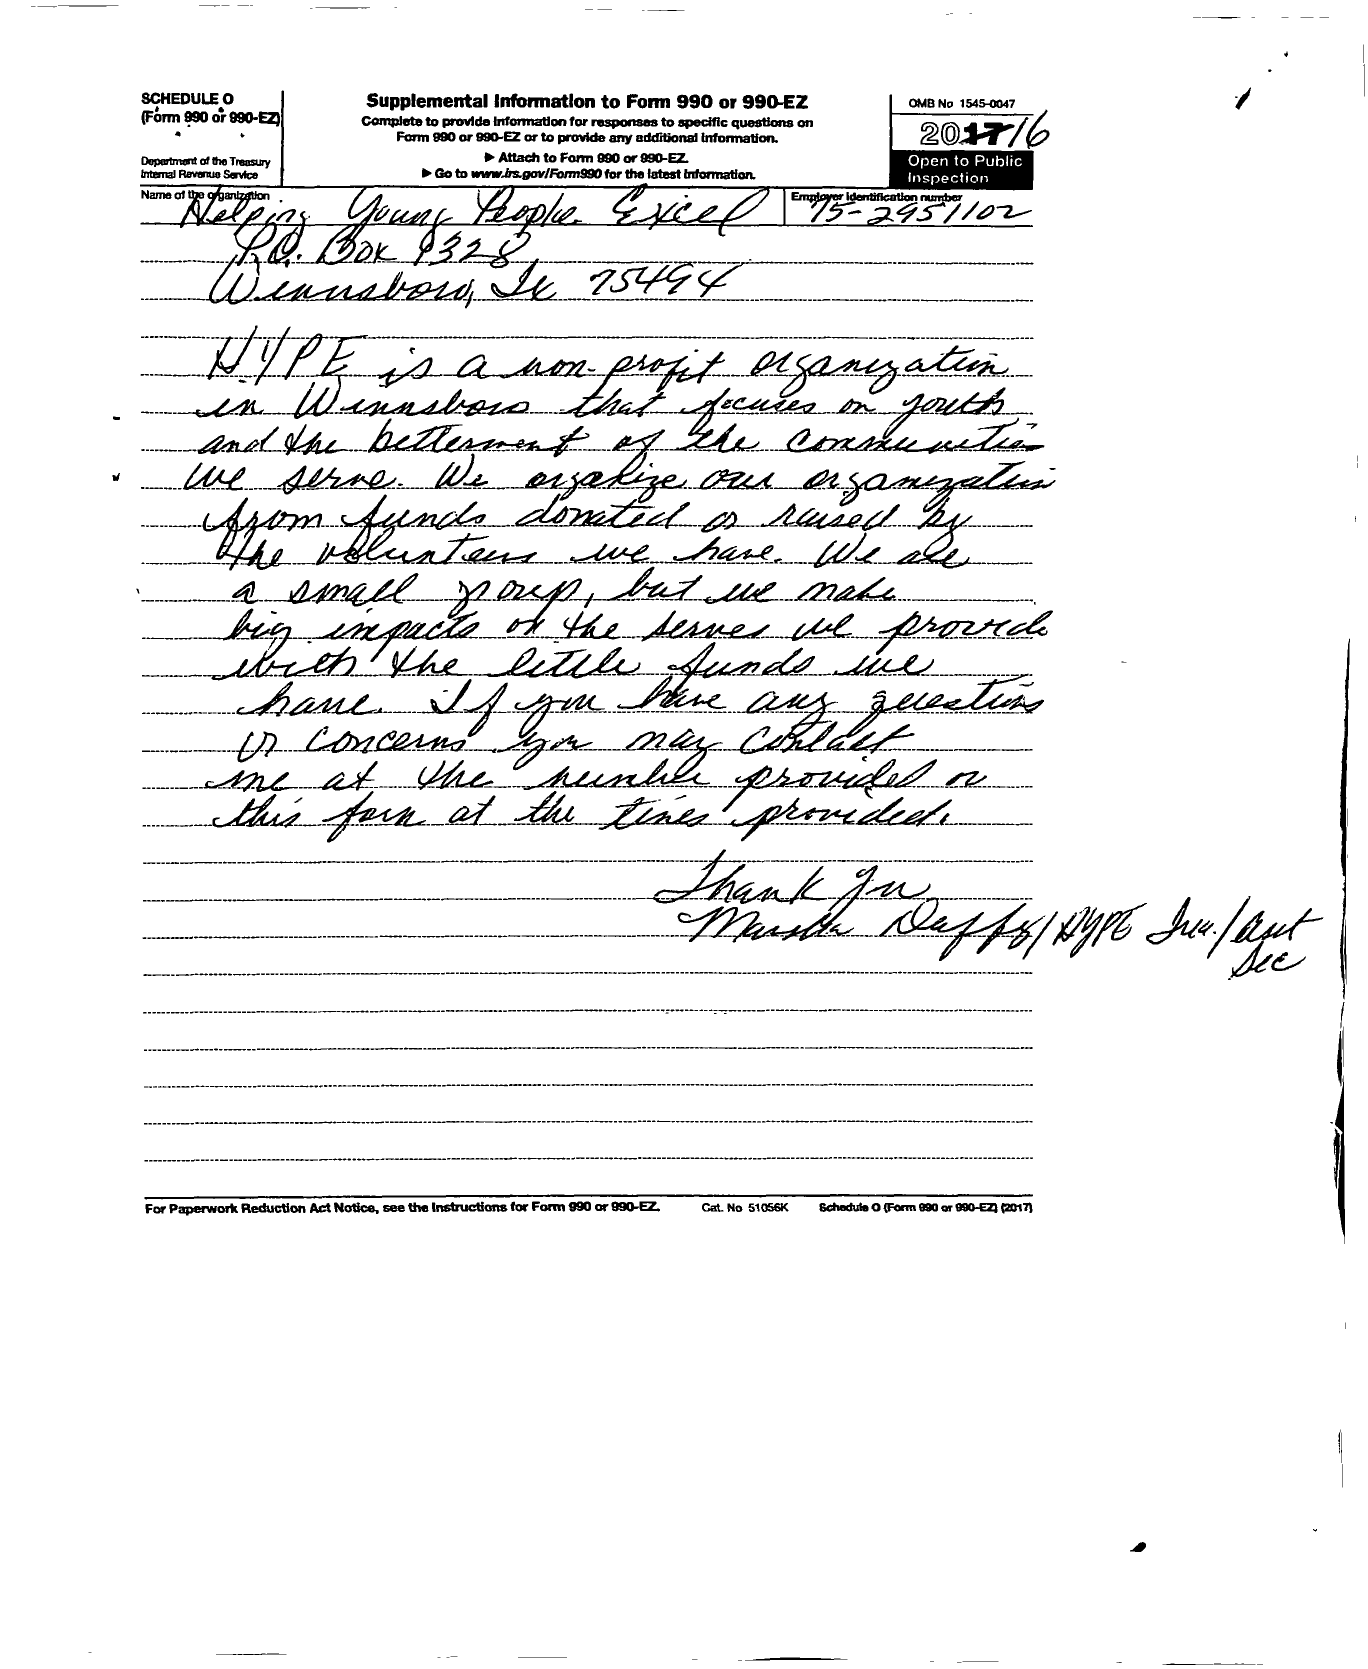 SCHEDULE O
(Form 990 or 990-EZ)
Department of the Treasury
Internal Revenue Service
Supplemental Information to Form 990 or 990-EZ
Complete to provide information for responses to specific questions on
Form 990 or 990-EZ or to provide any additional information.
▶ Attach to Form 990 or 990-EZ.
▶ Go to www.irs.gov/Form990 for the latest information.
OMB No 1545-0047
2017/16
Open to Public
Inspection
Name of the organization
Helping Young People Excel
Employer identification number
75-2951102
P.O. Box 1328
Winnsboro, Tx 75494
HYPE is a non-profit organization
in Winnsboro that focuses on youth
and the betterment of the communities
we serve. We organize our organization
from funds donated or raised by
the volunteers we have. We are
a small group, but we make
big impacts on the serves we provide
with the little funds we
have. If you have any questions
or concerns you may contact
me at the number provided on
this form at the times provided.
Thank You
Duffy/HYPE
Sec
For Paperwork Reduction Act Notice, see the Instructions for Form 990 or 990-EZ.
Cat. No 51056K
Schedule O (Form 990 or 990-EZ) (2017)